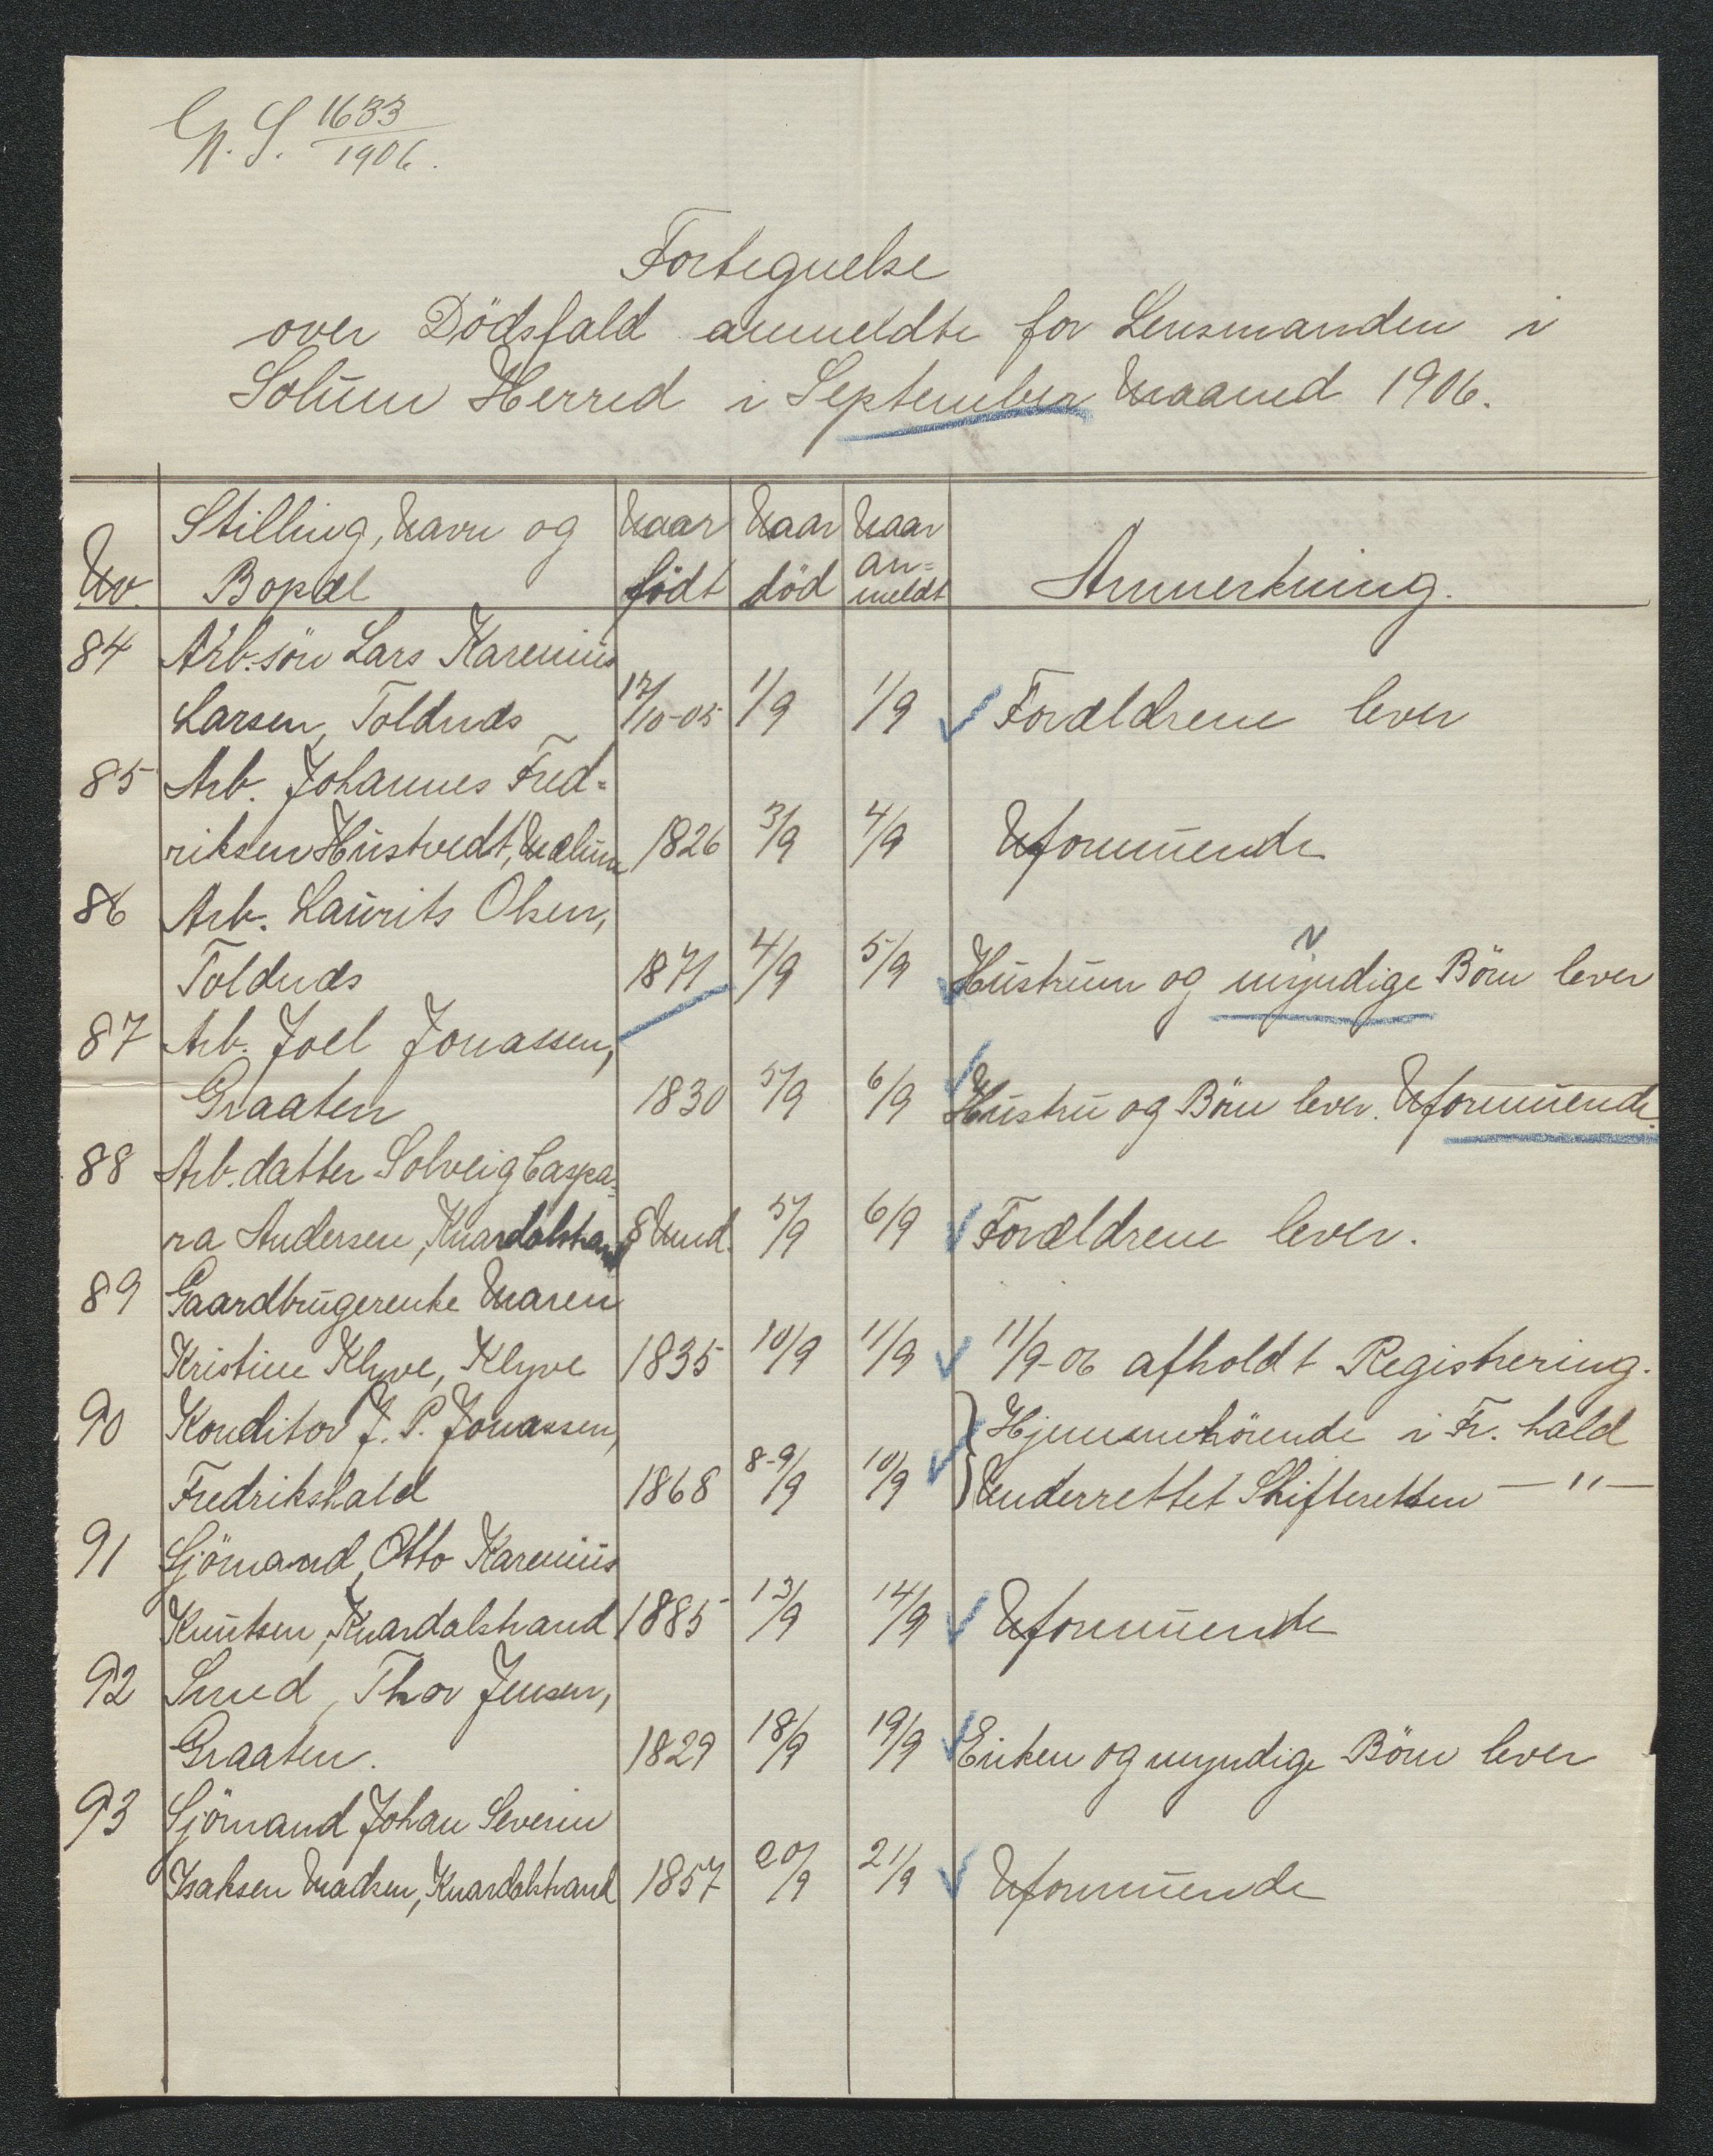 G. S. 1633/1906.
Fortegnelse
over Dödsfald anmeldte for Lensmanden i
Solum Herred i September Maaned 1906.
Nr. Stilling, Navn og Bopæl Naar födt Naar död Naar an=meldt Anmerkning.
84 Arb.sön Lars Karenius
Larsen, Toldnæs 17/10-05 1/9 1/9 Forældrene lever
85 Arb. Johannes Fred=
riksen Hustvedt, Mælum 1826 3/9 4/9 Uformuende
86 Arb. Laurits Olsen,
Toldnæs 1871 4/9 5/9 Hustruen og myndige Börn lever
87 Arb. Joel Jonassen,
Graaten 1830 5/9 6/9 Hustru og Börn lever. Uformuende.
88 Arb. datter Solveig Caspa=
ra Andersen, Knardalstrand 8 Mnd. 5/9 6/9 Forældrene lever.
89 Gaardbrugerenke Maren
Kristine Klyve, Klyve 1835 10/9 11/9 11/9-06 afholdt Registrering.
90 Konditor J. P. Jonassen, Hjemmehörende i Fr. hald
Fredrikshald 1868 8-9/9 10/9 Underrettet Skifteretten — " —
91 Sjömand, Otto Karenius
Knutsen, Knardalstrand 1885 13/9 14/9 Uformuende
92 Smed, Thor Jensen,
Graaten. 1829 18/9 19/9 Enken og myndige Börn lever
93 Sjömand Johan Severin
Isaksen Madsen, Knardalstrand 1857 20/9 21/9 Uformuende